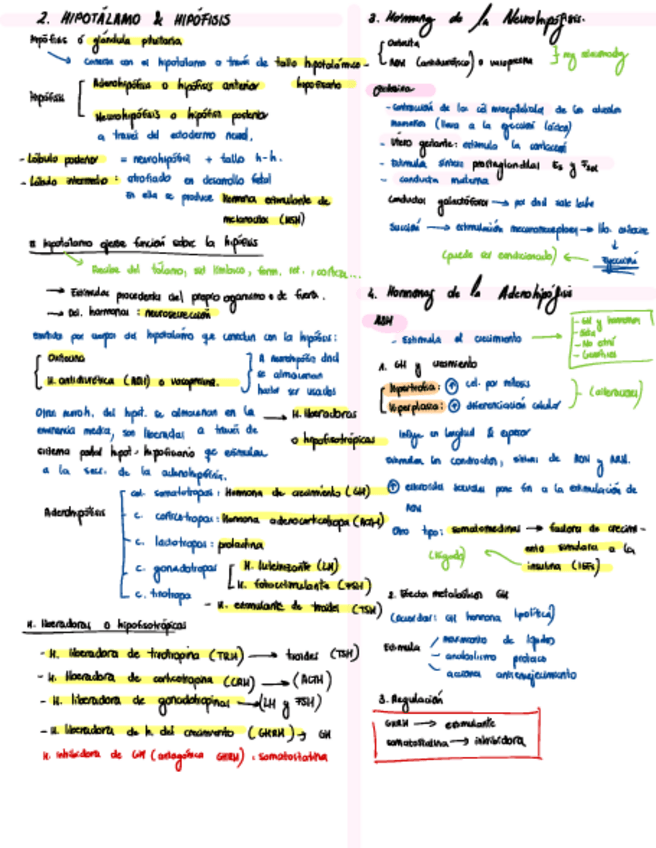 2. HIPOTÁLAMO & HIPÓFISIS
Hipófisis ó glándula pituitaria
conecta con el hipotálamo a través de tallo hipotalámico-
hipofisario
Hipófisis
Adenohipófisis o hipófisis anterior
Neurohipófisis o hipófisis posterior
a través del ectodermo neural.
- Lóbulo posterior = neurohipófisis + tallo h-h.
- Lóbulo intermedio: atrofiado en desarrollo fetal
En ella se produce Hormona estimulante de
melanocitos (MSH)
El hipotálamo ejerce función sobre la hipófisis
Recibe del tálamo, sist límbico, form. ret., corteza...
→ Estímulos procedentes del propio organismo o de fuera.
→ hormonas: neurosecreción
emitidas por cuerpos del hipotálamo que conectan con la hipófisis:
Oxitocina
H. antidiurética (ADH) o vasopresina.
A neurohipófisis dnd
se almacenan
hasta ser usadas
Otras neuroh. del hipot. se almacenan en la → H. liberadoras
eminencia media, son liberadas a través de o hipofisotrópicas
sistema portal hipot-hipofisario que estimulan
a la secr. de la adenohipófisis.
Adenohipófisis
cel. somatotropas: Hormona de crecimiento (GH)
c. corticotropas: Hormona adrenocorticotropa (ACTH)
c. lactotropas: prolactina
c. gonadotropas
H. luteinizante (LH)
H. foliculoestimulante (FSH)
c. tirotropa
- H. estimulante de tiroides (TSH)
H. liberadoras o hipofisotrópicas
- H. liberadora de tirotropina (TRH) → tiroides (TSH)
- H. liberadora de corticotropina (CRH) → (ACTH)
- H. liberadora de gonadotropinas → (LH y FSH)
- H. liberadora de h. del crecimiento (GHRH) → GH
H. inhibidora de GH (antagónica GHRH): somatostatina
3. Hormonas de la Neurohipófisis.
Oxitocina
ADH (antidiurético) o vasopresina
Oxitocina
- contracción de las cél mioepiteliales de los alveolos
mamarios (lleva a la eyección láctea)
- Útero gestante: estimula la contracción
- Estimula síntesis prostaglandinas E2 y F2α
- conducta materna
Conductos galactóforos → por dnd sale leche
Succión → estimulación mecanorreceptores → lib. oxitocina
↓
(puede ser condicionado) ← Eyección
4. Hormonas de la Adenohipófisis
- Estimula el crecimiento →
1. GH y crecimiento
Hipertrofia: ↑ cel. por mitosis
Hiperplasia: ↑ diferenciación celular
Influye en longitud & espesor
estimulan los condrocitos, síntesis de ADN y ARN.
↑ esteroides sexuales pone fin a la estimulación de
Otro tipo: somatomedinas → factores de crecimi-
(hígado) ento similares a la
insulina (IGFs)
2. Efectos metabólicos GH
(recordar: GH hormona lipolítica)
Estimula
movimiento de lípidos
anabolismo proteico
acciones antienvejecimiento
3. Regulación
GHRH → estimulante
somatostatina → inhibidora